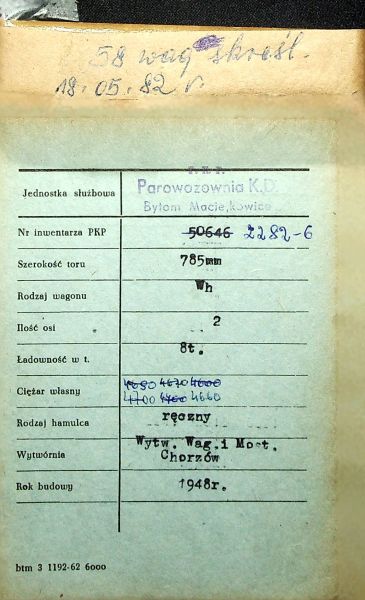 58 wag skreśl.
18.05.82 r.
P.K.P.
Jednostka służbowa Parowozownia K.D.
Bytom Maciejkowice
Nr inwentarza PKP 50646 2282-6
Szerokość toru 785mm
Rodzaj wagonu Wh
Ilość osi 2
Ładowność w t. 8t.
Ciężar własny 4650 4670 4600
4700 4460 4660
Rodzaj hamulca ręczny
Wytwórnia Wytw. Wag.i Most.
Chorzów
Rok budowy 1948r.
btm 3 1192-62 6000